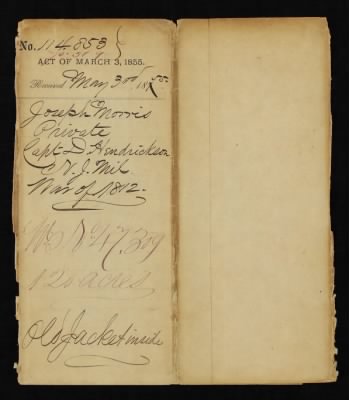 No. 114,853
ACT OF MARCH 3, 1855.
Received May 3rd 1855
Joseph Morris
Private
Capt. D. Hendrickson
N. J. Mil.
War of 1812.
Wt No 47,309
120 acres
Old Jacket inside